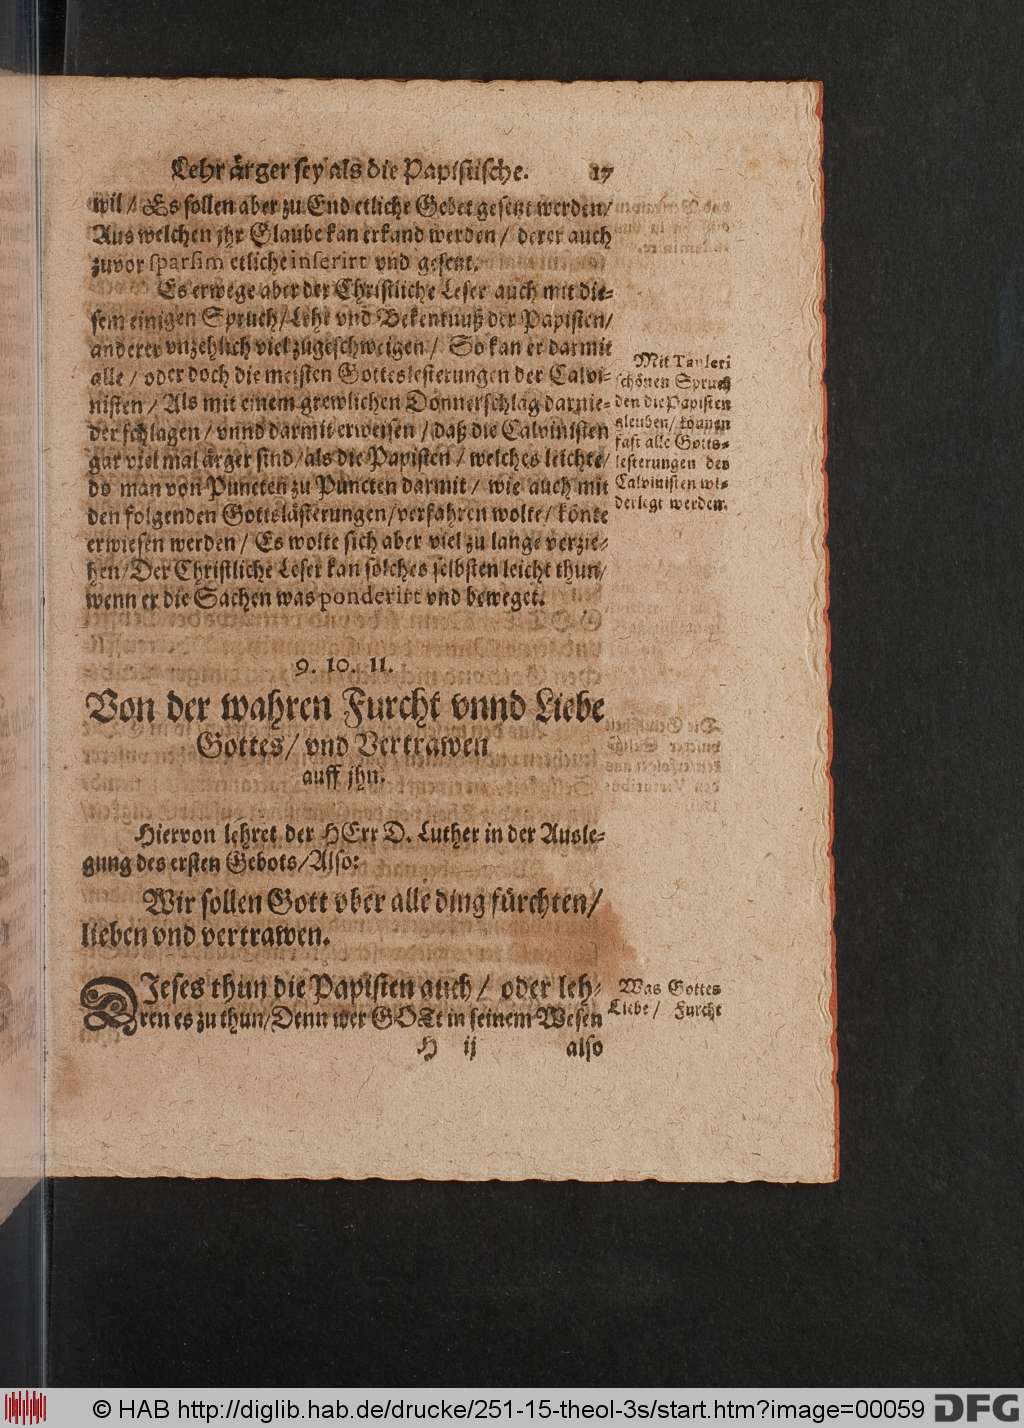 Lehr ärger sey als die Papistische. 17
wil / Es sollen aber zu End etliche Gebet gesetzt werden /
Aus welchen jhr Glaube kan erkand werden / derer auch
zuvor sparsim etliche inserirt vnd gesetzt.
Es erwege aber der Christliche Leser auch mit die-
sem einigen Spruch / Lehr vnd Bekentnuß der Papisten /
anderer vnzehlich viel zugeschweigen / So kan er darmit
alle / oder doch die meisten Gotteslesterungen der Calvi-
nisten / Als mit einem grewlichen Donnerschlag darnie-
der schlagen / vnnd darmit erweisen / daß die Calvinisten
gar viel mal ärger sind / als die Papisten / welches leichte /
do man von Puncten zu Puncten darmit / wie auch mit
den folgenden Gottslästerungen / verfahren wolte / könte
erwiesen werden / Es wolte sich aber viel zu lange verzie-
hen / Der Christliche Leser kan solches selbsten leicht thun /
wenn er die Sachen was ponderirt vnd beweget.
Mit Tauleri
schönen Spruch
den die Papisten
gleuben / können
fast alle Gotts-
lesterungen der
Calvinisten wi-
derlegt werden.
9. 10. 11.
Von der wahren Furcht vnnd Liebe
Gottes / vnd Vertrawen
auff jhn.
Hiervon lehret der HErr D. Luther in der Ausle-
gung des ersten Gebots / Also:
Wir sollen Gott vber alle ding fürchten /
lieben vnd vertrawen.
DIeses thun die Papisten auch / oder leh-
ren es zu thun / Denn wer GOTt in seinem Wesen
Was Gottes
Liebe / Furcht
H ij also
© HAB http://diglib.hab.de/drucke/251-15-theol-3s/start.htm?image=00059
DFG